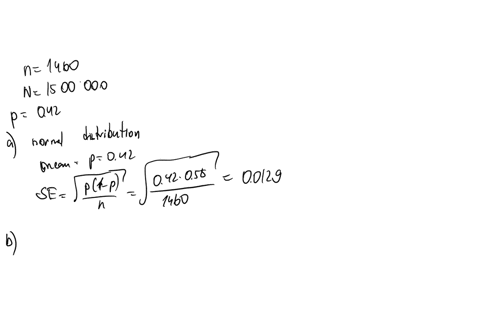 n = 1460
N = 1500'000
p = 0.42
a) normal distribution
mean = p = 0.42
SE = √(p(1-p)/n) = √(0.42 · 0.58/1460) = 0.0129
b)